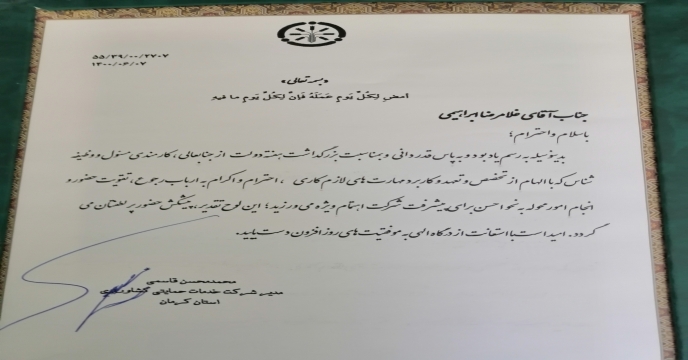 ۵۵/۳۹/۰۰/۲۷۰۷
۱۴۰۰/۰۶/۰۷
«بسمه تعالی»
اَمضِ لِکُلِّ یَومٍ عَمَلَهُ فَاِنَّ لِکُلِّ یَومٍ ما فیهِ
جناب آقای غلامرضا ابراهیمی
با سلام و احترام؛
بدینوسیله به رسم یادبود و به پاس قدردانی و بمناسبت بزرگداشت هفته دولت از جنابعالی، کارمندی مسئول و وظیفه
شناس که با الهام از تخصص و تعهد و کاربرد مهارت های لازم کاری ، احترام و اکرام به ارباب رجوع، تقویت حضور و
انجام امور محوله به نحو احسن برای پیشرفت شرکت اهتمام ویژه می ورزید؛ این لوح تقدیر، پیشکش حضور پر لطفتان می
گردد. امید است با استعانت از درگاه الهی به موفقیت های روز افزون دست یابید.
محمدمحسن قاسمی
مدیر شرکت خدمات حمایتی کشاورزی
استان کرمان